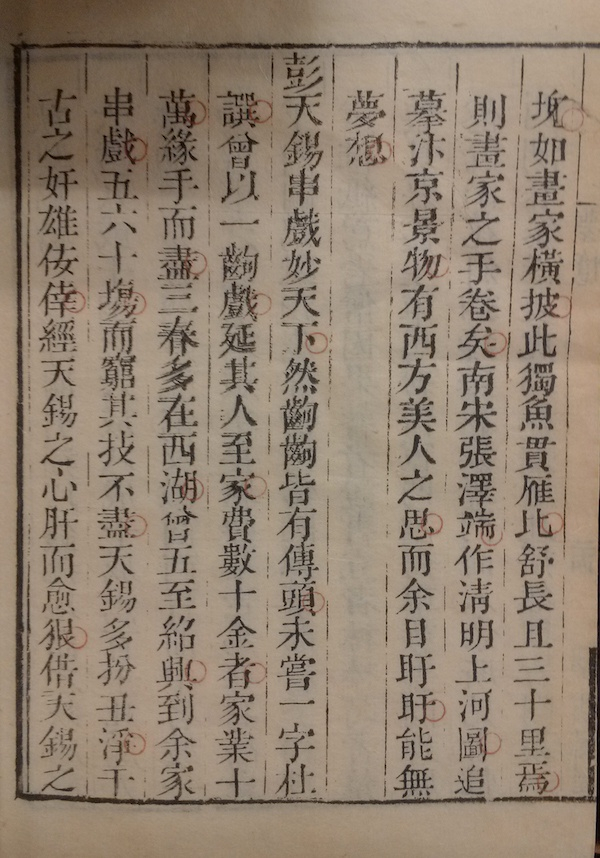 塊如畫家橫披此獨魚貫雁比舒長且三十里焉
則畫家之手卷矣南宋張澤端作清明上河圖追
摹汴京景物有西方美人之思而余目盱盱能無
夢想
彭天錫串戲妙天下然齣齣皆有傳頭未嘗一字杜
譔曾以一齣戲延其人至家費數十金者家業十
萬緣手而盡三春多在西湖曾五至紹興到余家
串戲五六十塲而窮其技不盡天錫多扮丑淨千
古之奸雄佞倖經天錫之心肝而愈狠借天錫之